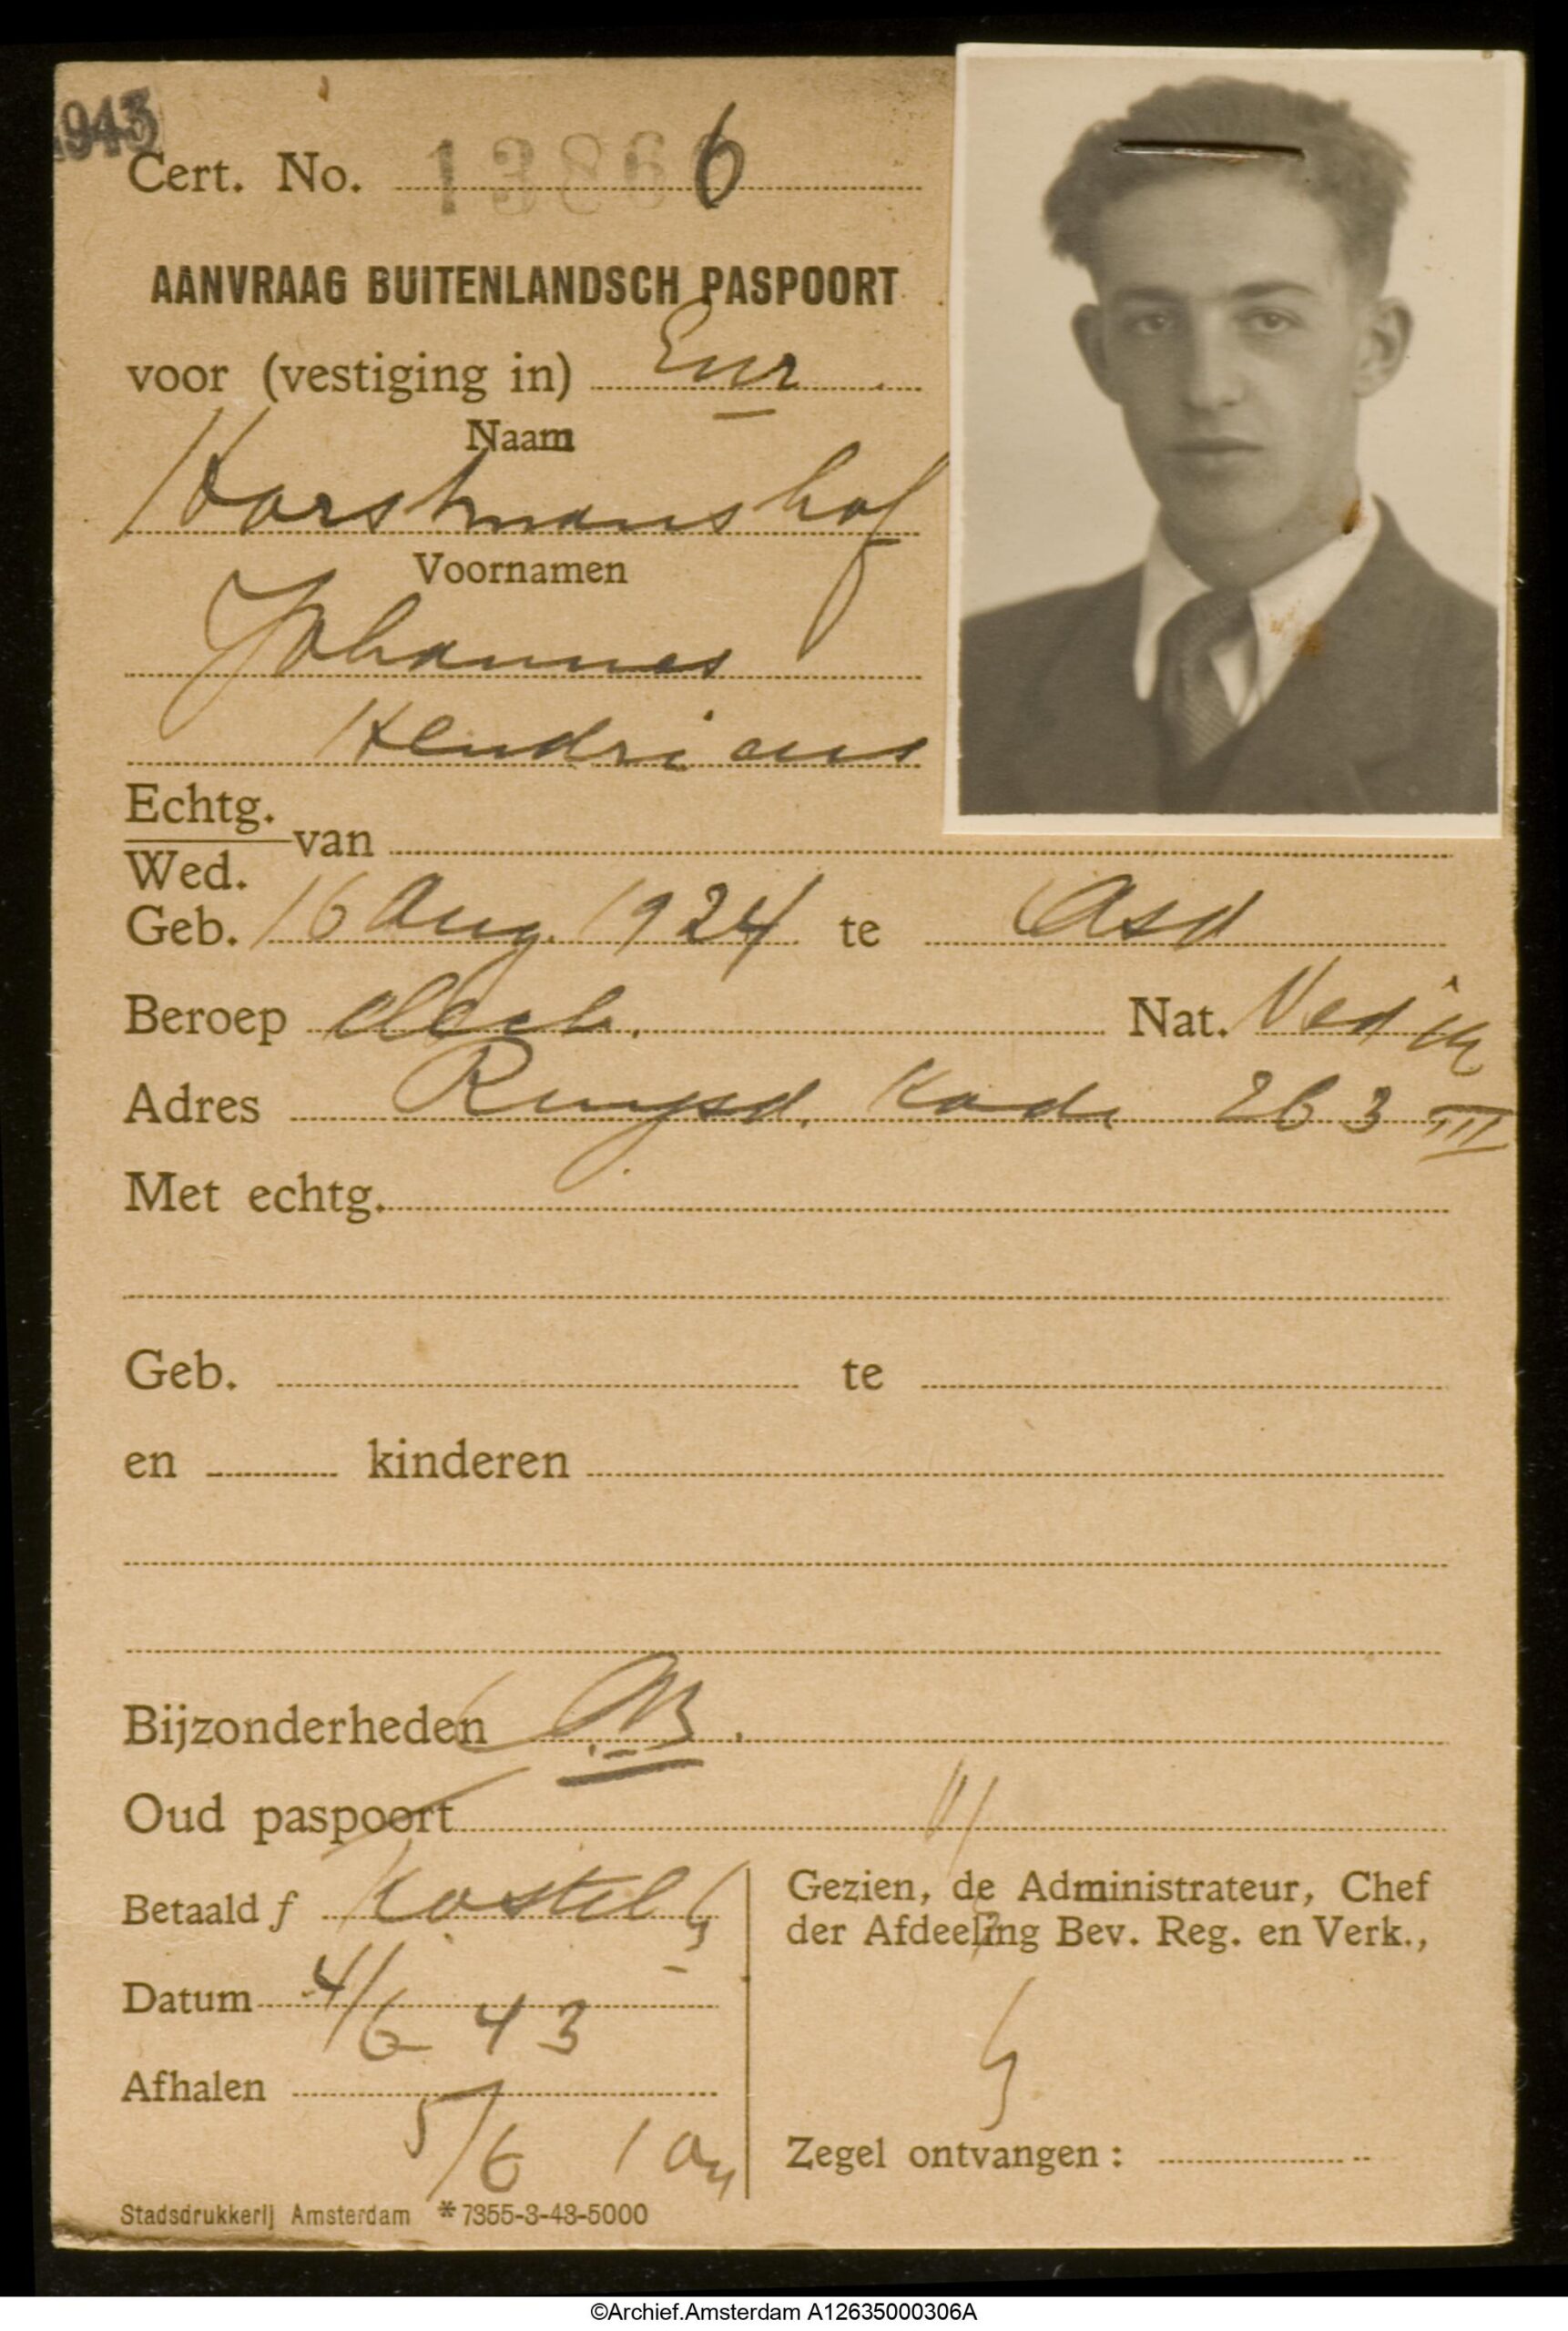 1943
Cert. No. 13866
AANVRAAG BUITENLANDSCH PASPOORT
voor (vestiging in) Eur
Naam
Horstmanshof
Voornamen
Johannes
Hendricus
Echtg.
Wed. van
Geb. 16 Aug. 1924 te Asd
Beroep Nat. Ned
Adres Ruysd. Kade 263 III
Met echtg.
Geb. te
en kinderen
Bijzonderheden
Oud paspoort
Betaald f Kostel
Gezien, de Administrateur, Chef
der Afdeeling Bev. Reg. en Verk.,
Datum 4/6 43
Afhalen
5/6
Zegel ontvangen:
Stadsdrukkerij Amsterdam *7355-3-43-5000
©Archief.Amsterdam A12635000306A